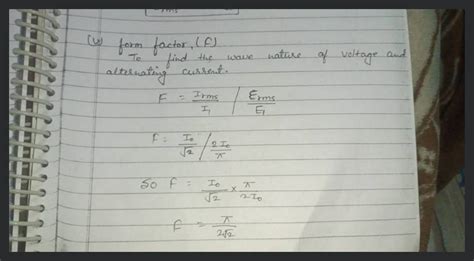 rms
(v) form factor, (F)
To find the wave nature of voltage and
alternating current.
F = Irms / I1 / Erms / E1
F = I0 / √2 / 2I0 / π
so F = I0 / √2 × π / 2I0
F = π / 2√2